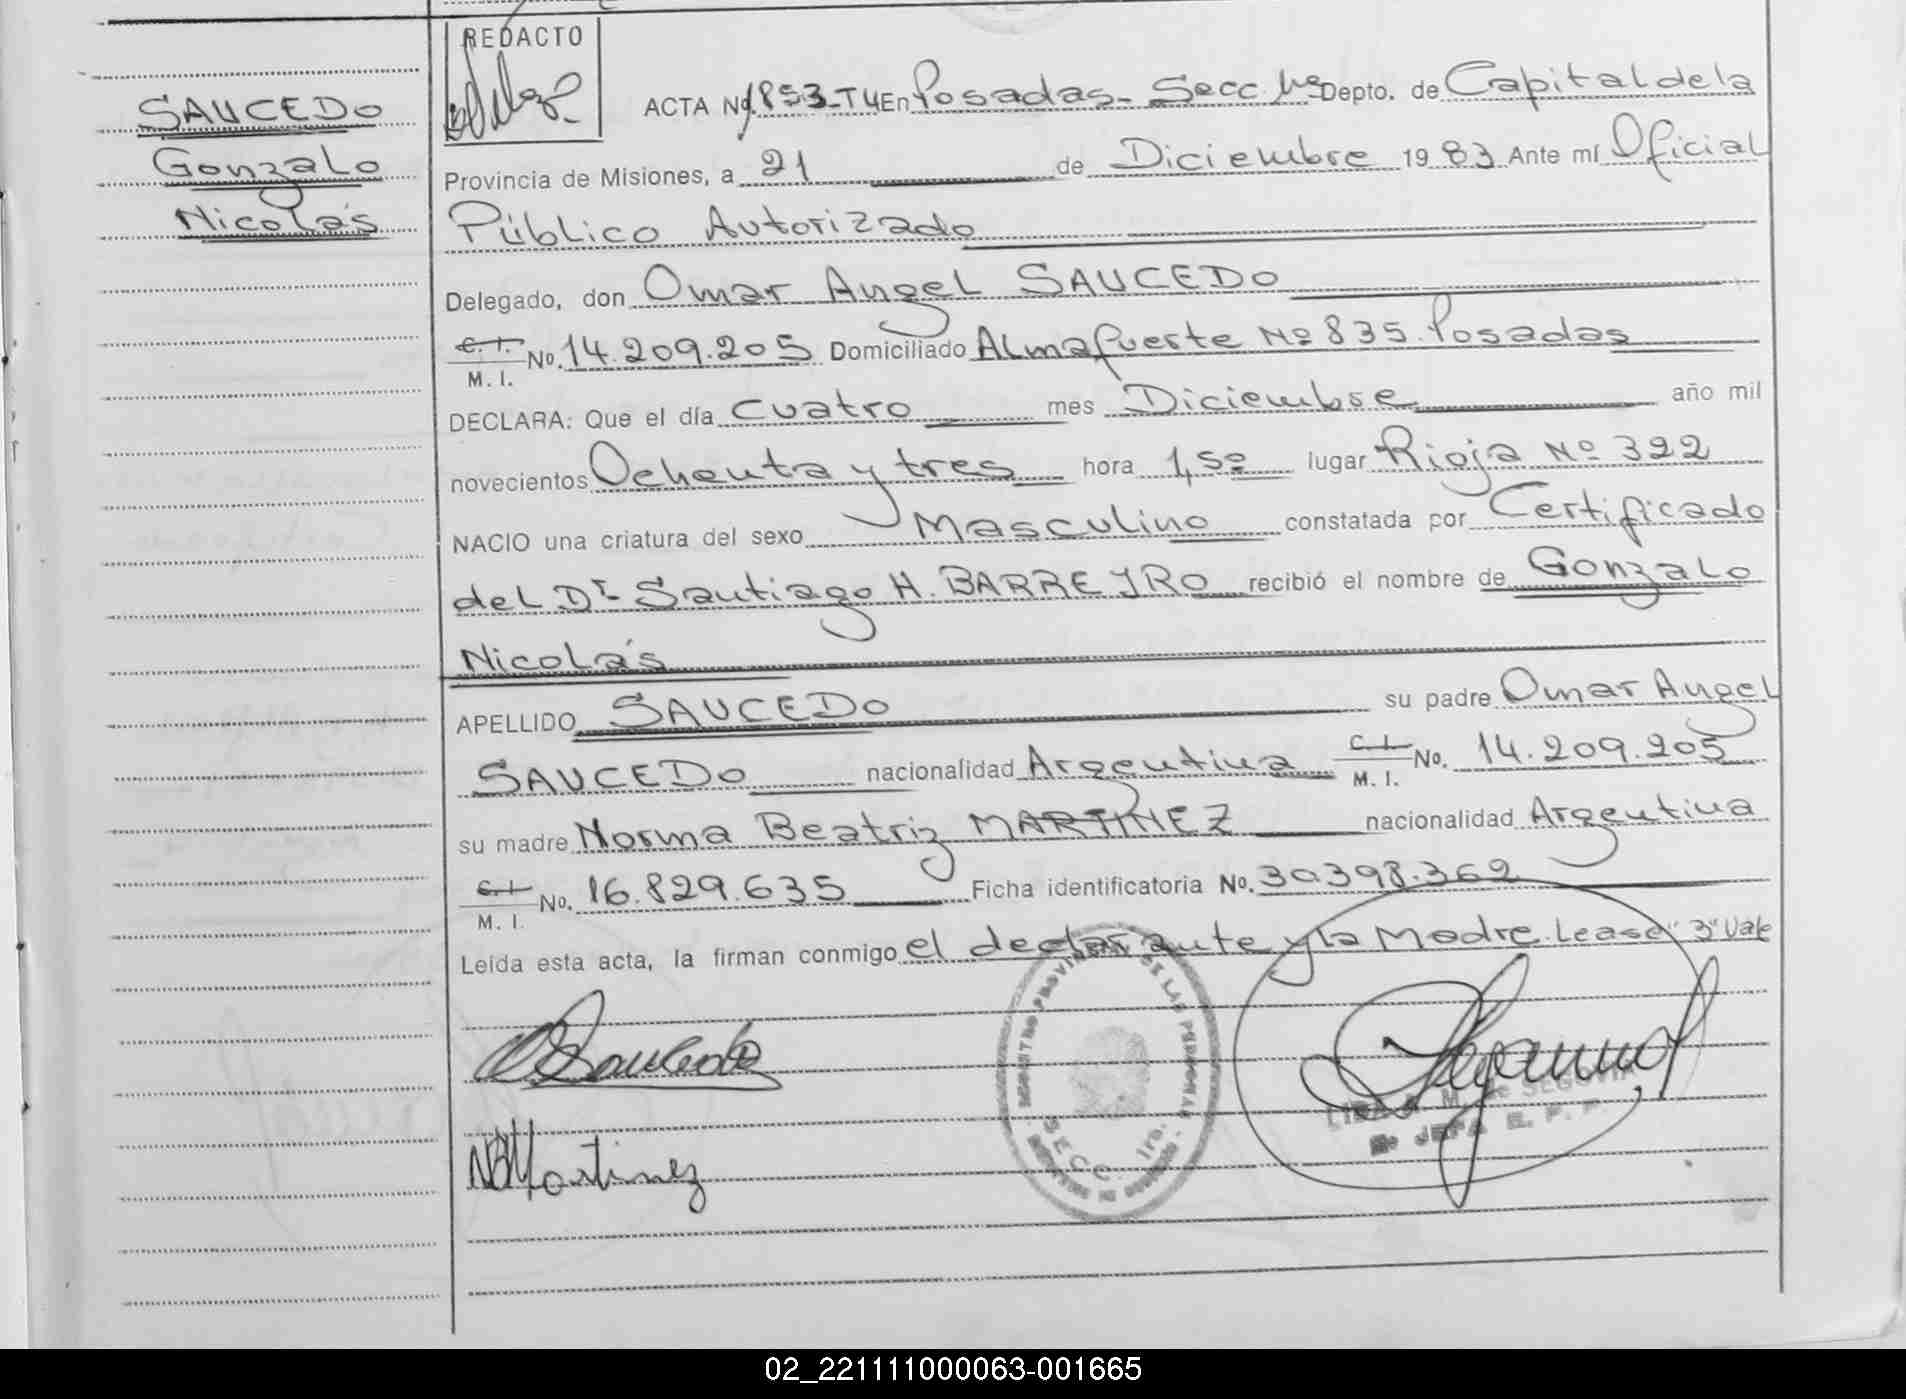 SAUCEDO
Gonzalo
Nicolás
REDACTO
ACTA Nº 1853-T4 En Posadas-Secc 1ra Depto. de Capital de la
Provincia de Misiones, a 21 de Diciembre 1983 Ante mí Oficial
Público Autorizado
Delegado, don Omar Angel SAUCEDO
C. I. / M. I. No. 14.209.205 Domiciliado Almafuerte Nº 835. Posadas
DECLARA: Que el día cuatro mes Diciembre año mil
novecientos Ochenta y tres hora 1,50 lugar Rioja Nº 322
NACIO una criatura del sexo Masculino constatada por Certificado
del Dr. Santiago H. BARREYRO recibió el nombre de Gonzalo
Nicolás
APELLIDO SAUCEDO su padre Omar Angel
SAUCEDO nacionalidad Argentina C. I. / M. I. No. 14.209.205
su madre Norma Beatriz MARTINEZ nacionalidad Argentina
C. I. / M. I. No. 16.829.635 Ficha identificatoria No. 30398.362
Leída esta acta, la firman conmigo el declarante y la Madre. Lease "3" Vale
O Saucedo
NBMartinez
REGISTRO PROVINCIAL DE LAS PERSONAS
SECC. 1ra.
M. de SEGOVIA
JEFA
02_221111000063-001665